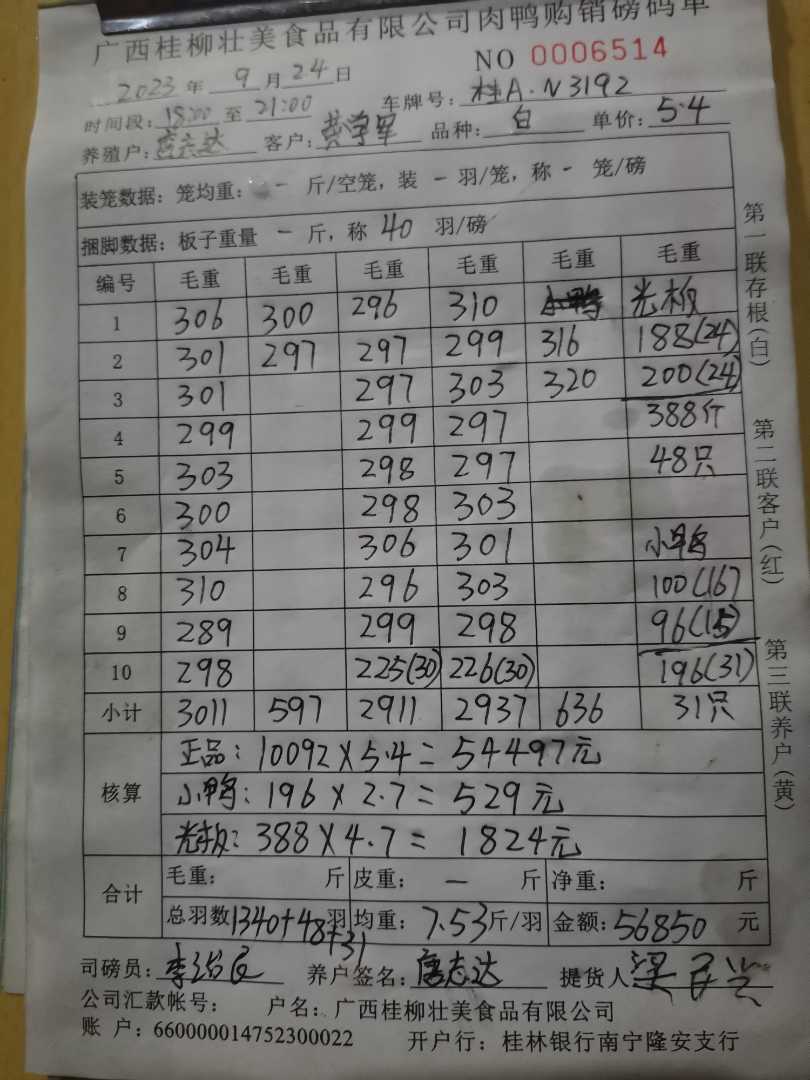 广西桂柳壮美食品有限公司肉鸭购销磅码单
NO 0006514
2023年 9月24日
时间段:18:00至21:00 车牌号:桂A·N3192
养殖户:唐志达 客户:黄学军 品种:白 单价:5.4
装笼数据:笼均重: - 斤/空笼,装 - 羽/笼,称 - 笼/磅
捆脚数据:板子重量 - 斤,称 40 羽/磅
编号 毛重 毛重 毛重 毛重 毛重 毛重
1 306 300 296 310 小鸭 光板
2 301 297 297 299 316 188(24)
3 301 297 303 320 200(24)
4 299 299 297 388斤
5 303 298 297 48只
6 300 298 303
7 304 306 301 小鸭
8 310 296 303 100(16)
9 289 299 298 96(15)
10 298 225(30) 226(30) 196(31)
小计 3011 597 2911 2937 636 31只
核算
正品:10092×5.4=54497元
小鸭:196×2.7=529元
光板:388×4.7=1824元
合计
毛重: 斤 皮重: - 斤 净重: 斤
总羽数1340+48+31羽 均重:7.53斤/羽 金额:56850元
司磅员:李 养户签名:唐志达 提货人:梁
公司汇款帐号: 户名:广西桂柳壮美食品有限公司
账 户:660000014752300022 开户行:桂林银行南宁隆安支行
第一联存根(白)
第二联客户(红)
第三联养户(黄)